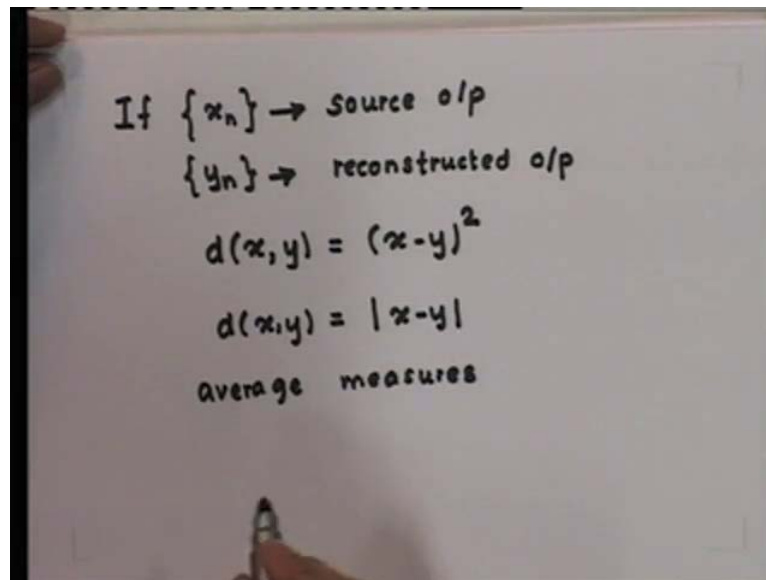 If {xn} → source o/p
{yn} → reconstructed o/p
d(x,y) = (x-y)²
d(x,y) = |x-y|
average measures